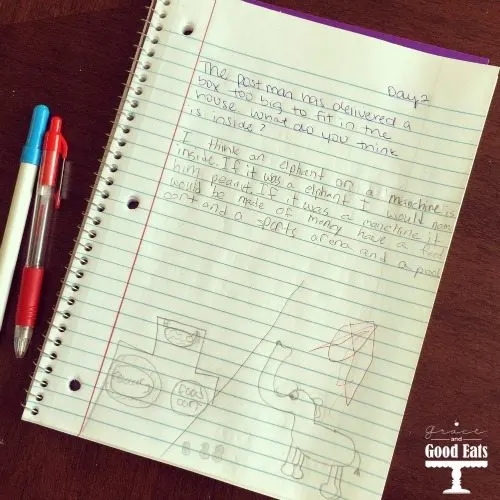 Day 2
The postman has delivered a
box too big to fit in the
house. What do you think
is inside?
I think an elphant or a maechine is
inside. If it was a elphant I would name
him peanut. If it was a maechine it
would be made of money have a food
cort and a sports arena and a pool
food
cort
grace
and
GOOD EATS